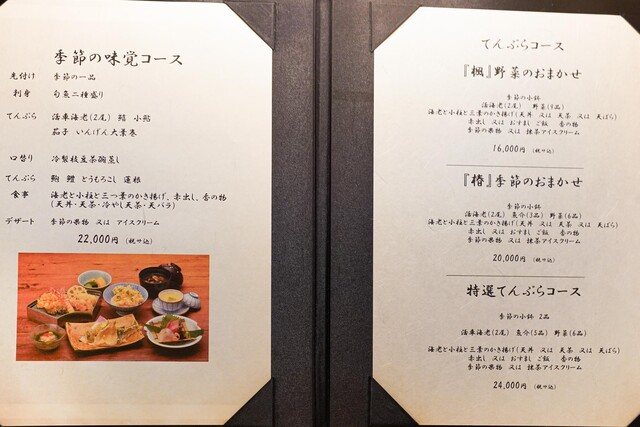 季節の味覚コース
先付け 季節の一品
刺身 旬魚二種盛り
てんぷら 活車海老(2尾) 鱚 小鮎
茄子 いんげん大葉巻
口替り 冷製枝豆茶碗蒸し
てんぷら 鮑 鱧 とうもろこし 蓮根
食事 海老と小柱と三つ葉のかき揚げ、赤出し、香の物
(天丼・天茶・冷やし天茶・天バラ)
デザート 季節の果物 又は アイスクリーム
22,000円 (税サ込)
てんぷらコース
『楓』野菜のおまかせ
季節の小鉢
活海老(2尾) 野菜(8品)
海老と小柱と三つ葉のかき揚げ(天丼 又は 天茶 又は 天ばら)
赤出し 又は おすまし ご飯 香の物
季節の果物 又は 抹茶アイスクリーム
16,000円 (税サ込)
『椿』季節のおまかせ
季節の小鉢
活海老(2尾) 魚介(3品) 野菜(6品)
海老と小柱と三つ葉のかき揚げ(天丼 又は 天茶 又は 天ばら)
赤出し 又は おすまし ご飯 香の物
季節の果物 又は 抹茶アイスクリーム
20,000円 (税サ込)
特選てんぷらコース
季節の小鉢 2品
活車海老(2尾) 魚介(5品) 野菜(6品)
海老と小柱と三つ葉のかき揚げ(天丼 又は 天茶 又は 天ばら)
赤出し 又は おすまし ご飯 香の物
季節の果物 又は 抹茶アイスクリーム
24,000円 (税サ込)